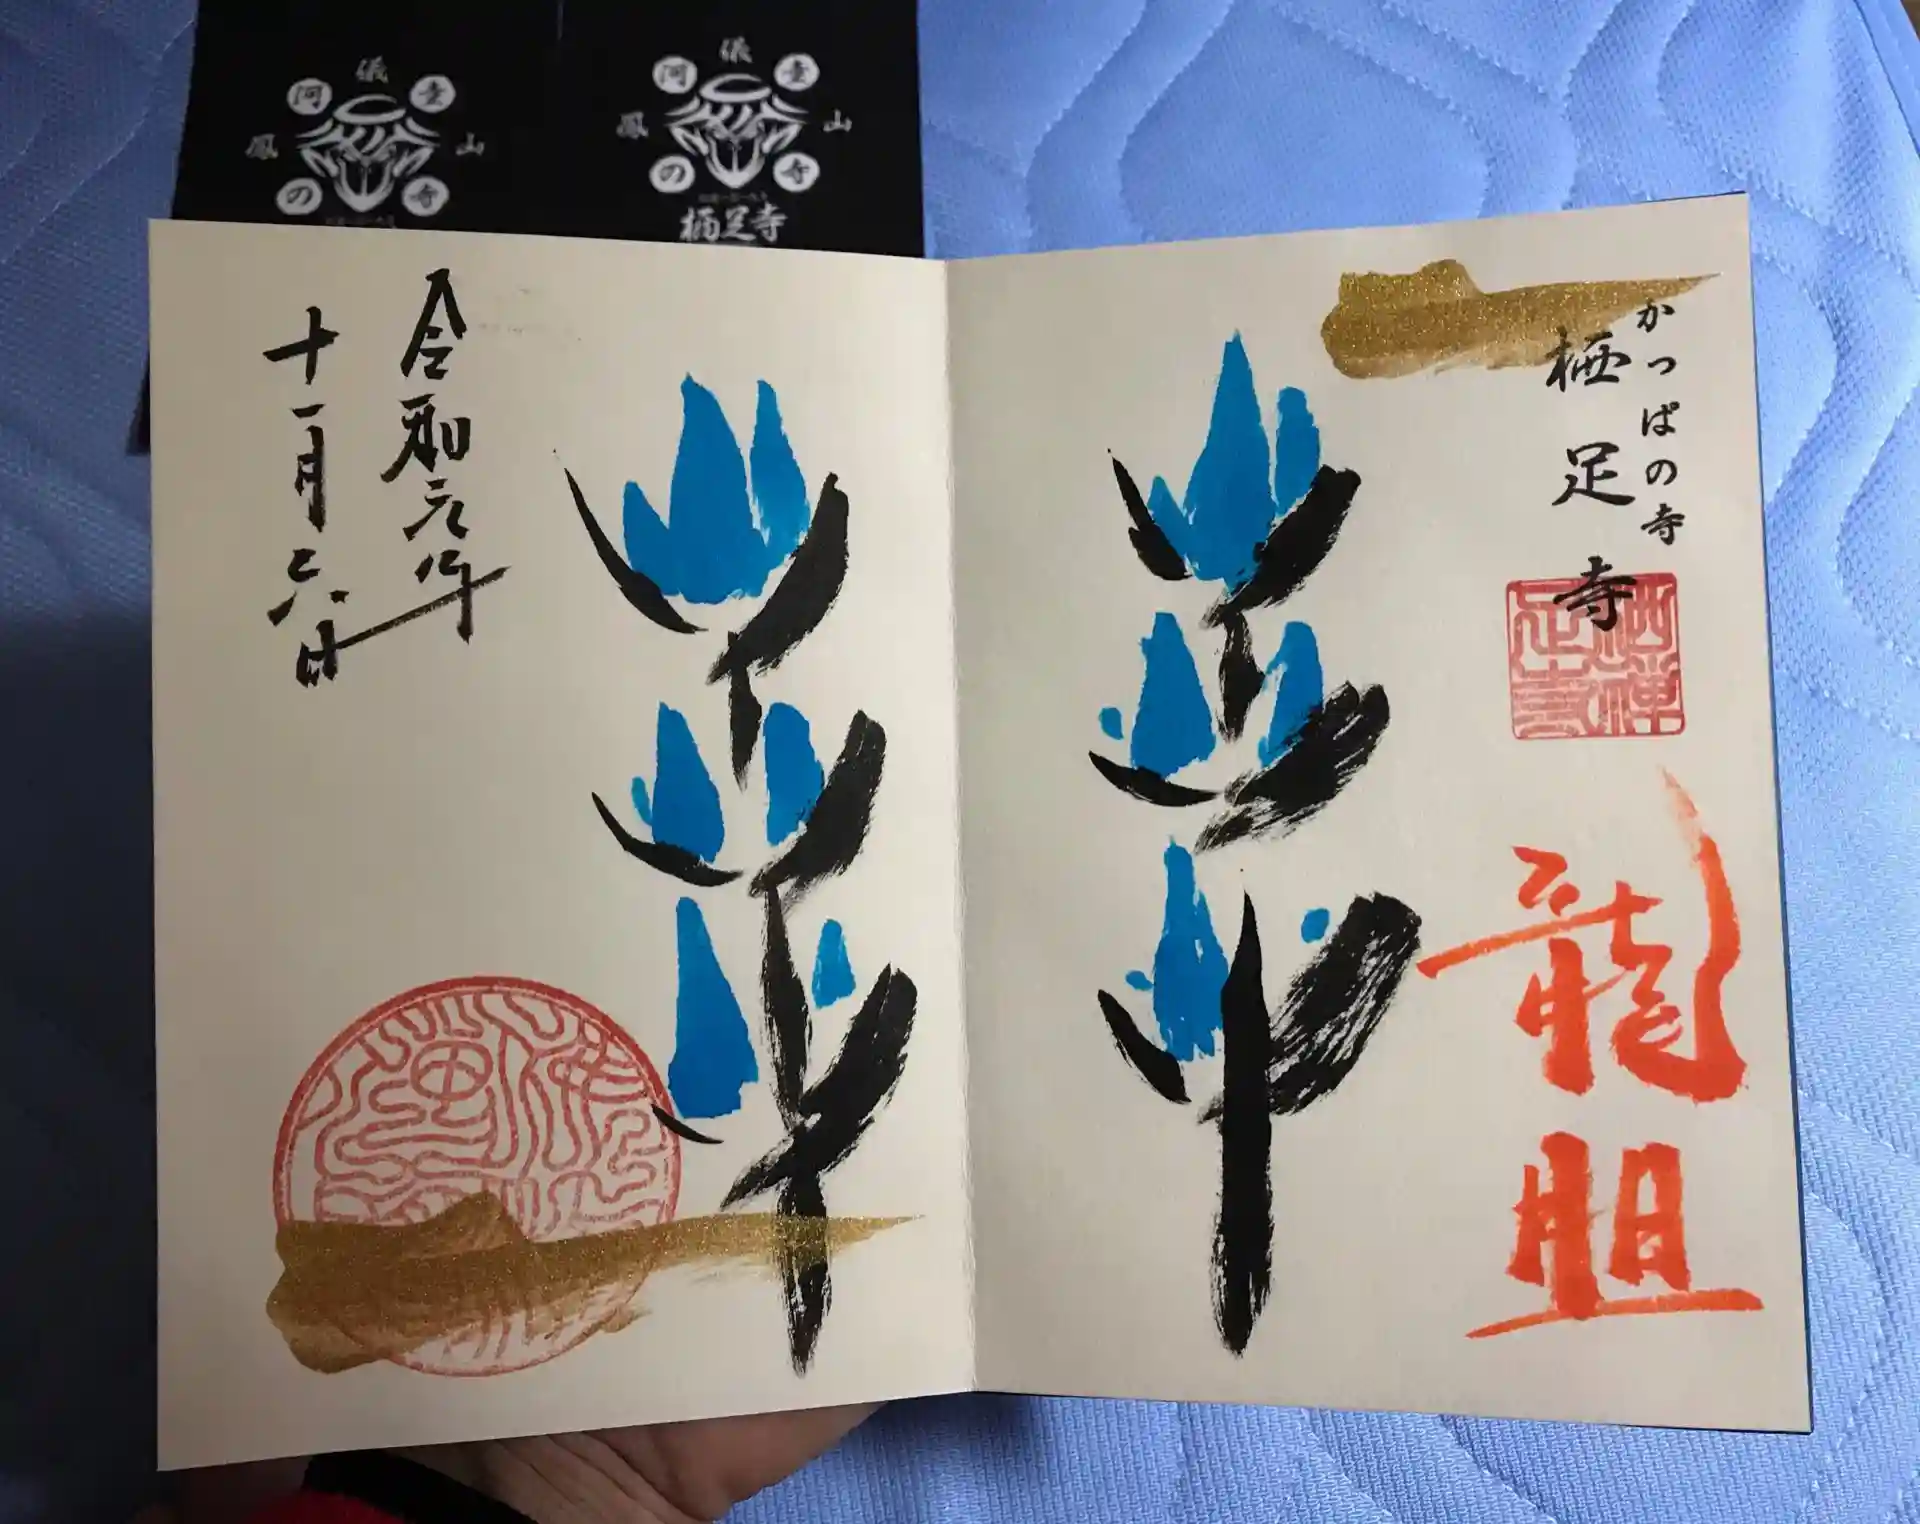 儀
河童
鳳山
の寺
儀
河童
鳳山
の寺
栖足寺
かっぱの寺
栖足寺
栖禅足寺
龍胆
令和元年
十一月二六日